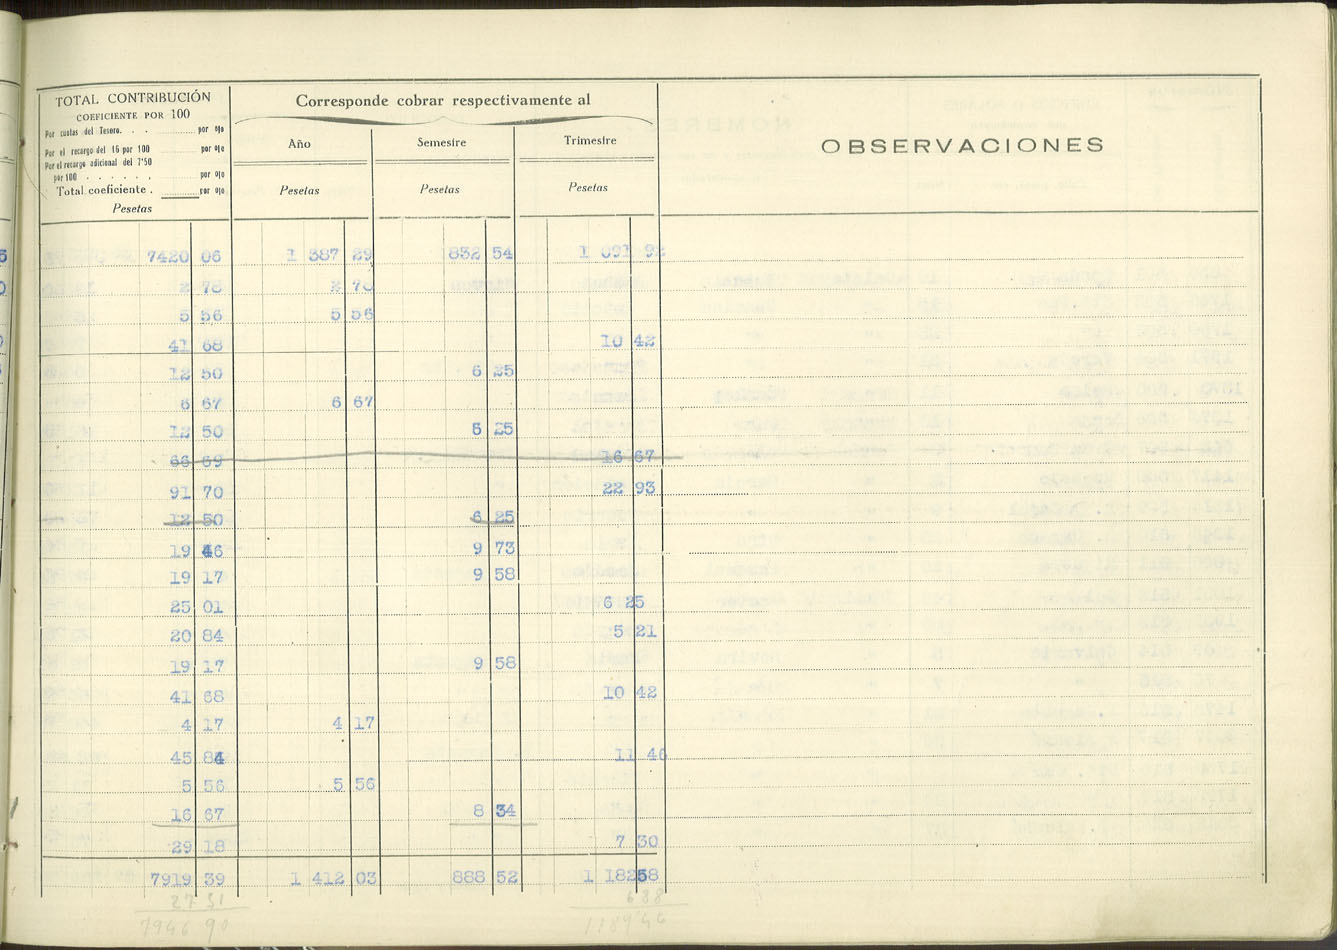 TOTAL CONTRIBUCIÓN
COEFICIENTE POR 100
Por cuotas del Tesoro. . . por o|o
Por el recargo del 16 por 100 por o|o
Por el recargo adicional del 7'50
por 100 . . . . . . por o|o
Total coeficiente . por o|o
Pesetas
Corresponde cobrar respectivamente al
Año Semestre Trimestre
Pesetas Pesetas Pesetas
OBSERVACIONES
7420 06 1 387 29 832 54 1 091 92
2 78 2 78
5 56 5 56
41 68 10 42
12 50 6 25
6 67 6 67
12 50 6 25
66 69 16 67
91 70 22 93
12 50 6 25
19 46 9 73
19 17 9 58
25 01 6 25
20 84 5 21
19 17 9 58
41 68 10 42
4 17 4 17
45 84 11 46
5 56 5 56
16 67 8 34
29 18 7 30
7919 39 1 412 03 888 52 1 182 58
27 51 6 88
7946 90 1189'46